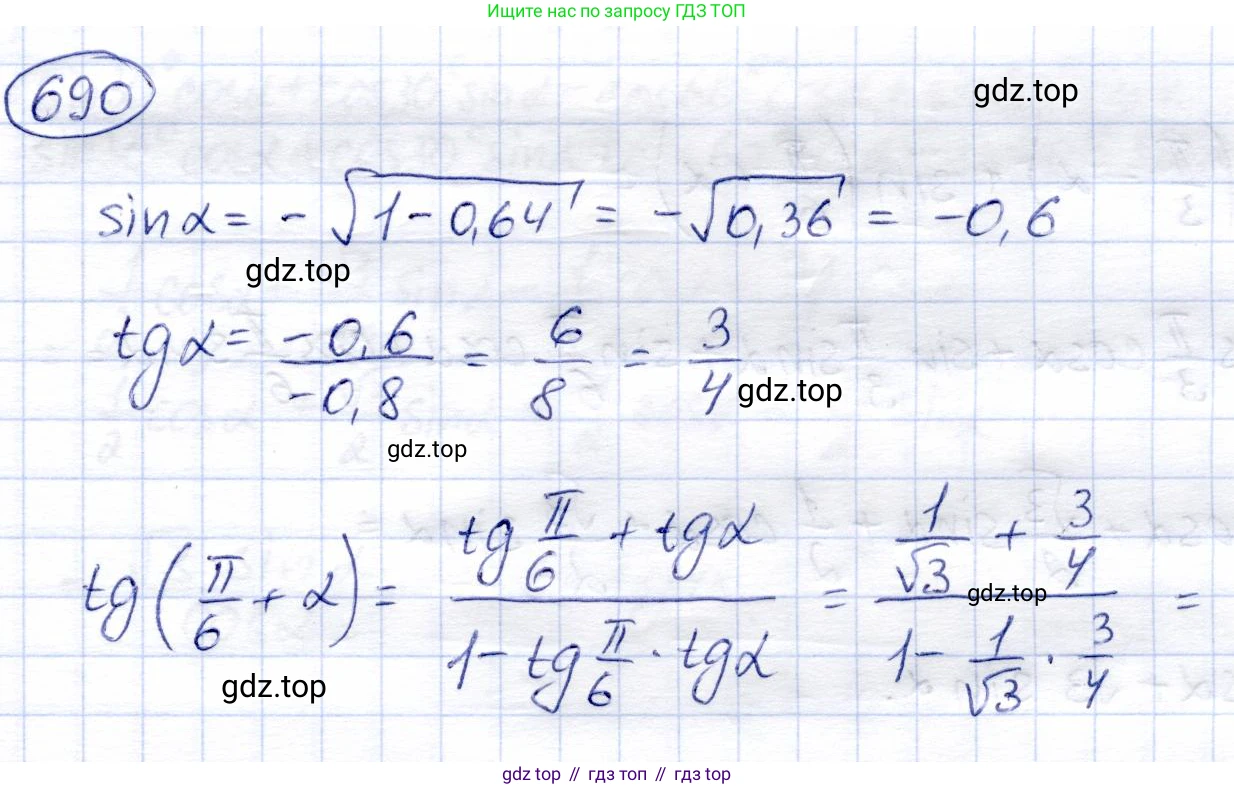 Ищите нас по запросу ГДЗ ТОП
690
gdz.top
sin α = - √(1 - 0,64) = - √(0,36) = -0,6
gdz.top
tg α = -0,6/-0,8 = 6/8 = 3/4
gdz.top
gdz.top
tg(π/6 + α) = (tg π/6 + tg α)/(1 - tg π/6 · tg α) = (1/√3 + 3/4)/(1 - 1/√3 · 3/4) =
gdz.top
gdz.top
gdz top // гдз топ // гдз top